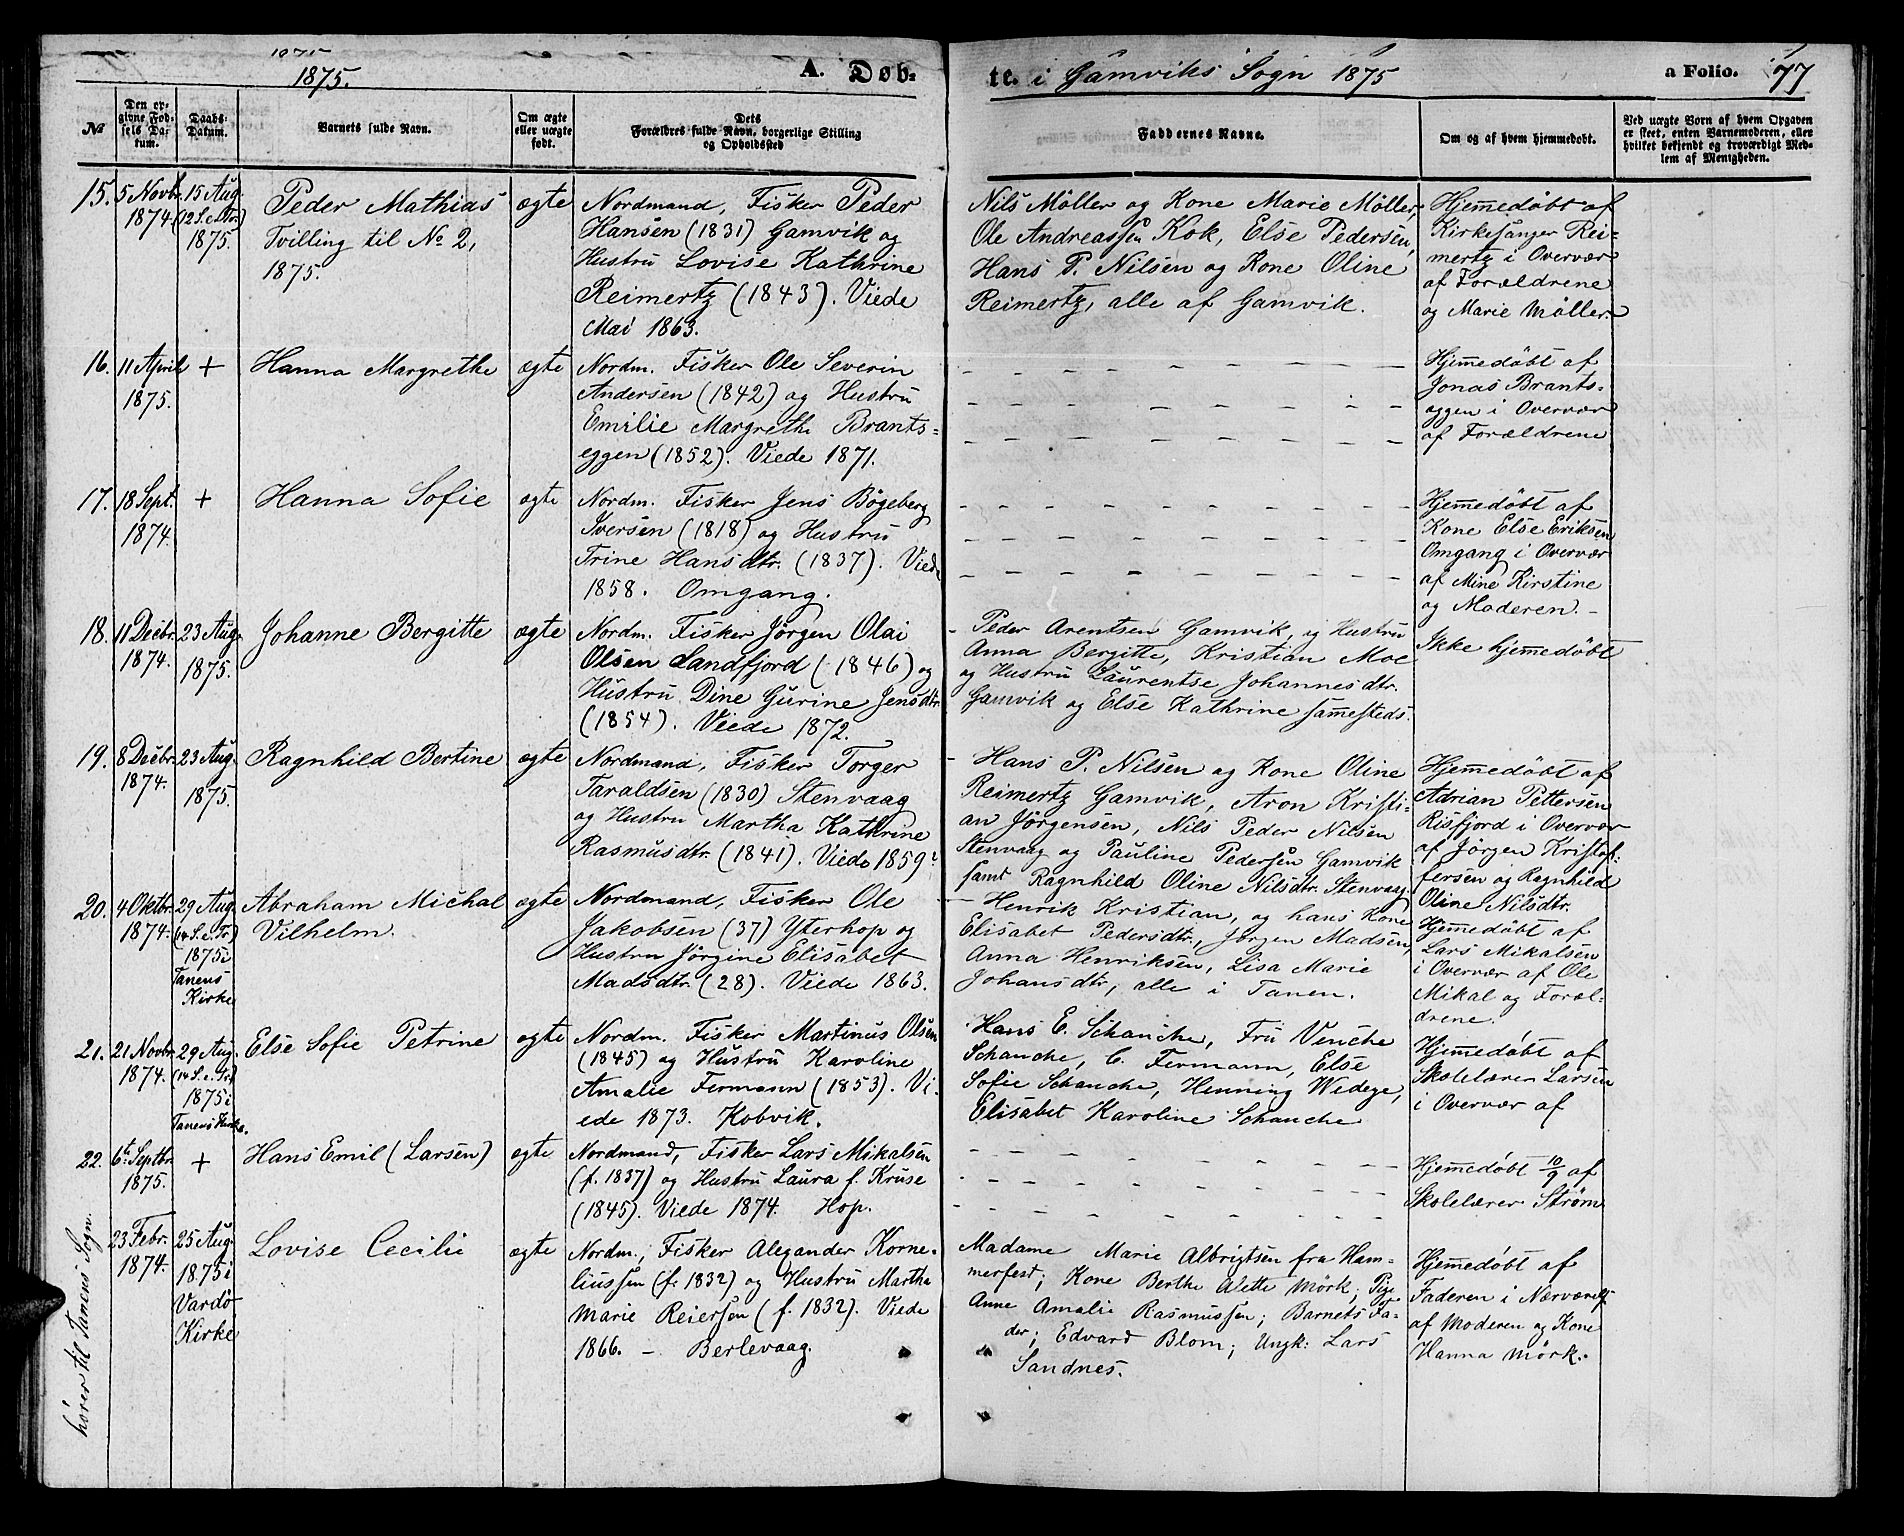 1875.
A. Døb-
te. i Gamviks Sogn 1875
a Folio. 77
№
Den er-
givne Fød-
sels Da-
tum.
Daabs-
Datum.
Barnets fulde Navn.
Om ægte
eller uægte
født.
Dets
Forældres fulde Navn, borgerlige Stilling
og Opholdssted
Faddernes Navne.
Om og af hvem hjemmedøbt.
Ved uægte Børn af hvem Opgaven
er skeet, enten Barnemoderen, eller
hvilket bekjendt og troværdigt Med-
lem af Menigheden.
15.
5 Novbr.
1874
15 Aug.
(12 S. e. Tr.)
1875.
Peder Mathias
Tvilling til No 2,
1875.
ægte
Nordmand, Fisker Peder
Hansen (1831) Gamvik og
Hustru Lovise Kathrine
Reimertz (1843). Viede
Mai 1863.
Nils Möller og Kone Marie Möller,
Ole Andreassen Kok, Else Pedersen,
Hans P. Nilsen og Kone Oline
Reimertz, alle af Gamvik.
Hjemmedøbt af
Kirkesanger Rei-
mertz i Overvær
af Forældrene
og Marie Møller.
16.
11 April
1875.
+
Hanna Margrethe
ægte
Nordm. Fisker Ole Severin
Andersen (1842) og Hustru
Emilie Margrethe Brants-
eggen (1852). Viede 1871.
Hjemmedøbt af
Jonas Brants-
eggen i Overvær
af Forældrene
17.
18 Sept.
1874.
+
Hanna Sofie
ægte
Nordm. Fisker Jens Bögeberg
Iversen (1818) og Hustru
Trine Hansdtr. (1837). Viede
1858. Omgang.
Hjemmedøbt af
Kone Else Eriksen
Omgang i Overvær
af Mine Kirstine
og Moderen. -
18.
11 Decbr.
1874.
23 Aug.
1875.
Johanne Bergitte
ægte
Nordm. Fisker Jörgen Olai
Olsen Sandfjord (1846) og
Hustru Dine Gurine Jensdtr.
(1854). Viede 1872.
- Peder Arentsen Gamvik, og Hustru
Anna Bergitte, Kristian Moe
og Hustru Laurentse Johannesdtr.
Gamvik og Else Kathrine sammesteds.
Ikke hjemmedøbt
19.
8 Decbr.
1874.
23 Aug.
1875.
Ragnhild Bertine
ægte
Nordmand, Fisker Torger
Taraldsen (1830) Stenvaag
og Hustru Martha Kathrine
Rasmusdtr. (1841). Viede 1859.
- Hans P. Nilsen og Kone Oline
Reimertz Gamvik, Aron Kristi-
an Jörgensen, Nils Peder Nilsen
Stenvaag og Pauline Pedersen Gamvik
samt Ragnhild Oline Nilsdtr. Stenvaag.
Hjemmedøbt af
Adrian Pettersen
Risfjord i Overvær
af Jörgen Kristof-
fersen og Ragnhild
Oline Nilsdtr.
20.
4 Oktbr.
1874.
29 Aug.
(14 S. e. Tr.)
1875 i
Tanens
Kirke
Abraham Michal
Vilhelm.
ægte
Nordmand, Fisker Ole
Jakobsen (37) Yterhop og
Hustru Jörgine Elisabet
Madsdtr. (28). Viede 1863.
- Henrik Kristian, og hans Kone
Elisabet Pedersdtr., Jörgen Madsen,
Anna Henriksen, Lisa Marie
Johansdtr, alle i Tanen.
Hjemmedøbt af
Lars Mikalsen
i Overvær af Ole
Mikal og Foræl-
drene.
21.
21 Novbr.
1874.
29 Aug.
(14 S. e. Tr.)
1875 i
Tanens Kirke.
Else Sofie Petrine
ægte
Nordm. Fisker Martinus Olsen
(1845) og Hustru Karoline
Amalie Fermann (1853). Vi-
ede 1873. Kobvik.
Hans E. Schanche, Fru Venche
Schanche, C. Fermann, Else
Sofie Schanche, Henning Widege,
Elisabet Karoline Schanche
Hjemmedøbt af
Skolelærer Larsen
i Overvær af
22.
6te Septbr.
1875.
+
Hans Emil (Larsen)
ægte
Nordmand, Fisker Lars Mikalsen
(f. 1837) og Hustru Laura f. Kruse
(1845). Viede 1874. Hop.
Hjemmedøbt 10/9 af
Skolelærer Strøm
hörer til Tanens Sogn.
23 Febr.
1874.
25 Aug.
1875 i
Vardö
Kirke
Lovise Cecilie
ægte
Nordm., Fisker Alexander Korne-
liussen (f. 1832) og Hustru Martha
Marie Reiersen (f. 1832). Viede
1866. - Berlevaag.
Madame Marie Albrigtsen fra Ham-
merfest; Kone Berthe Alette Mörk, Pige
Anne Amalie Rasmussen; Barnets Fa-
der; Edvard Blom; Ungk: Lars
Sandnes.
Hjemmedøbt af
Faderen i Nærværelse
af Moderen og Kone
Hanna Mörk.